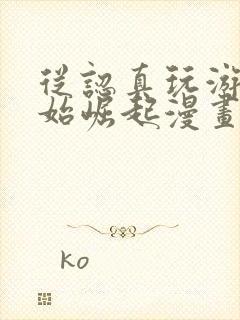 從認真玩游
始崛起漫畫
ko